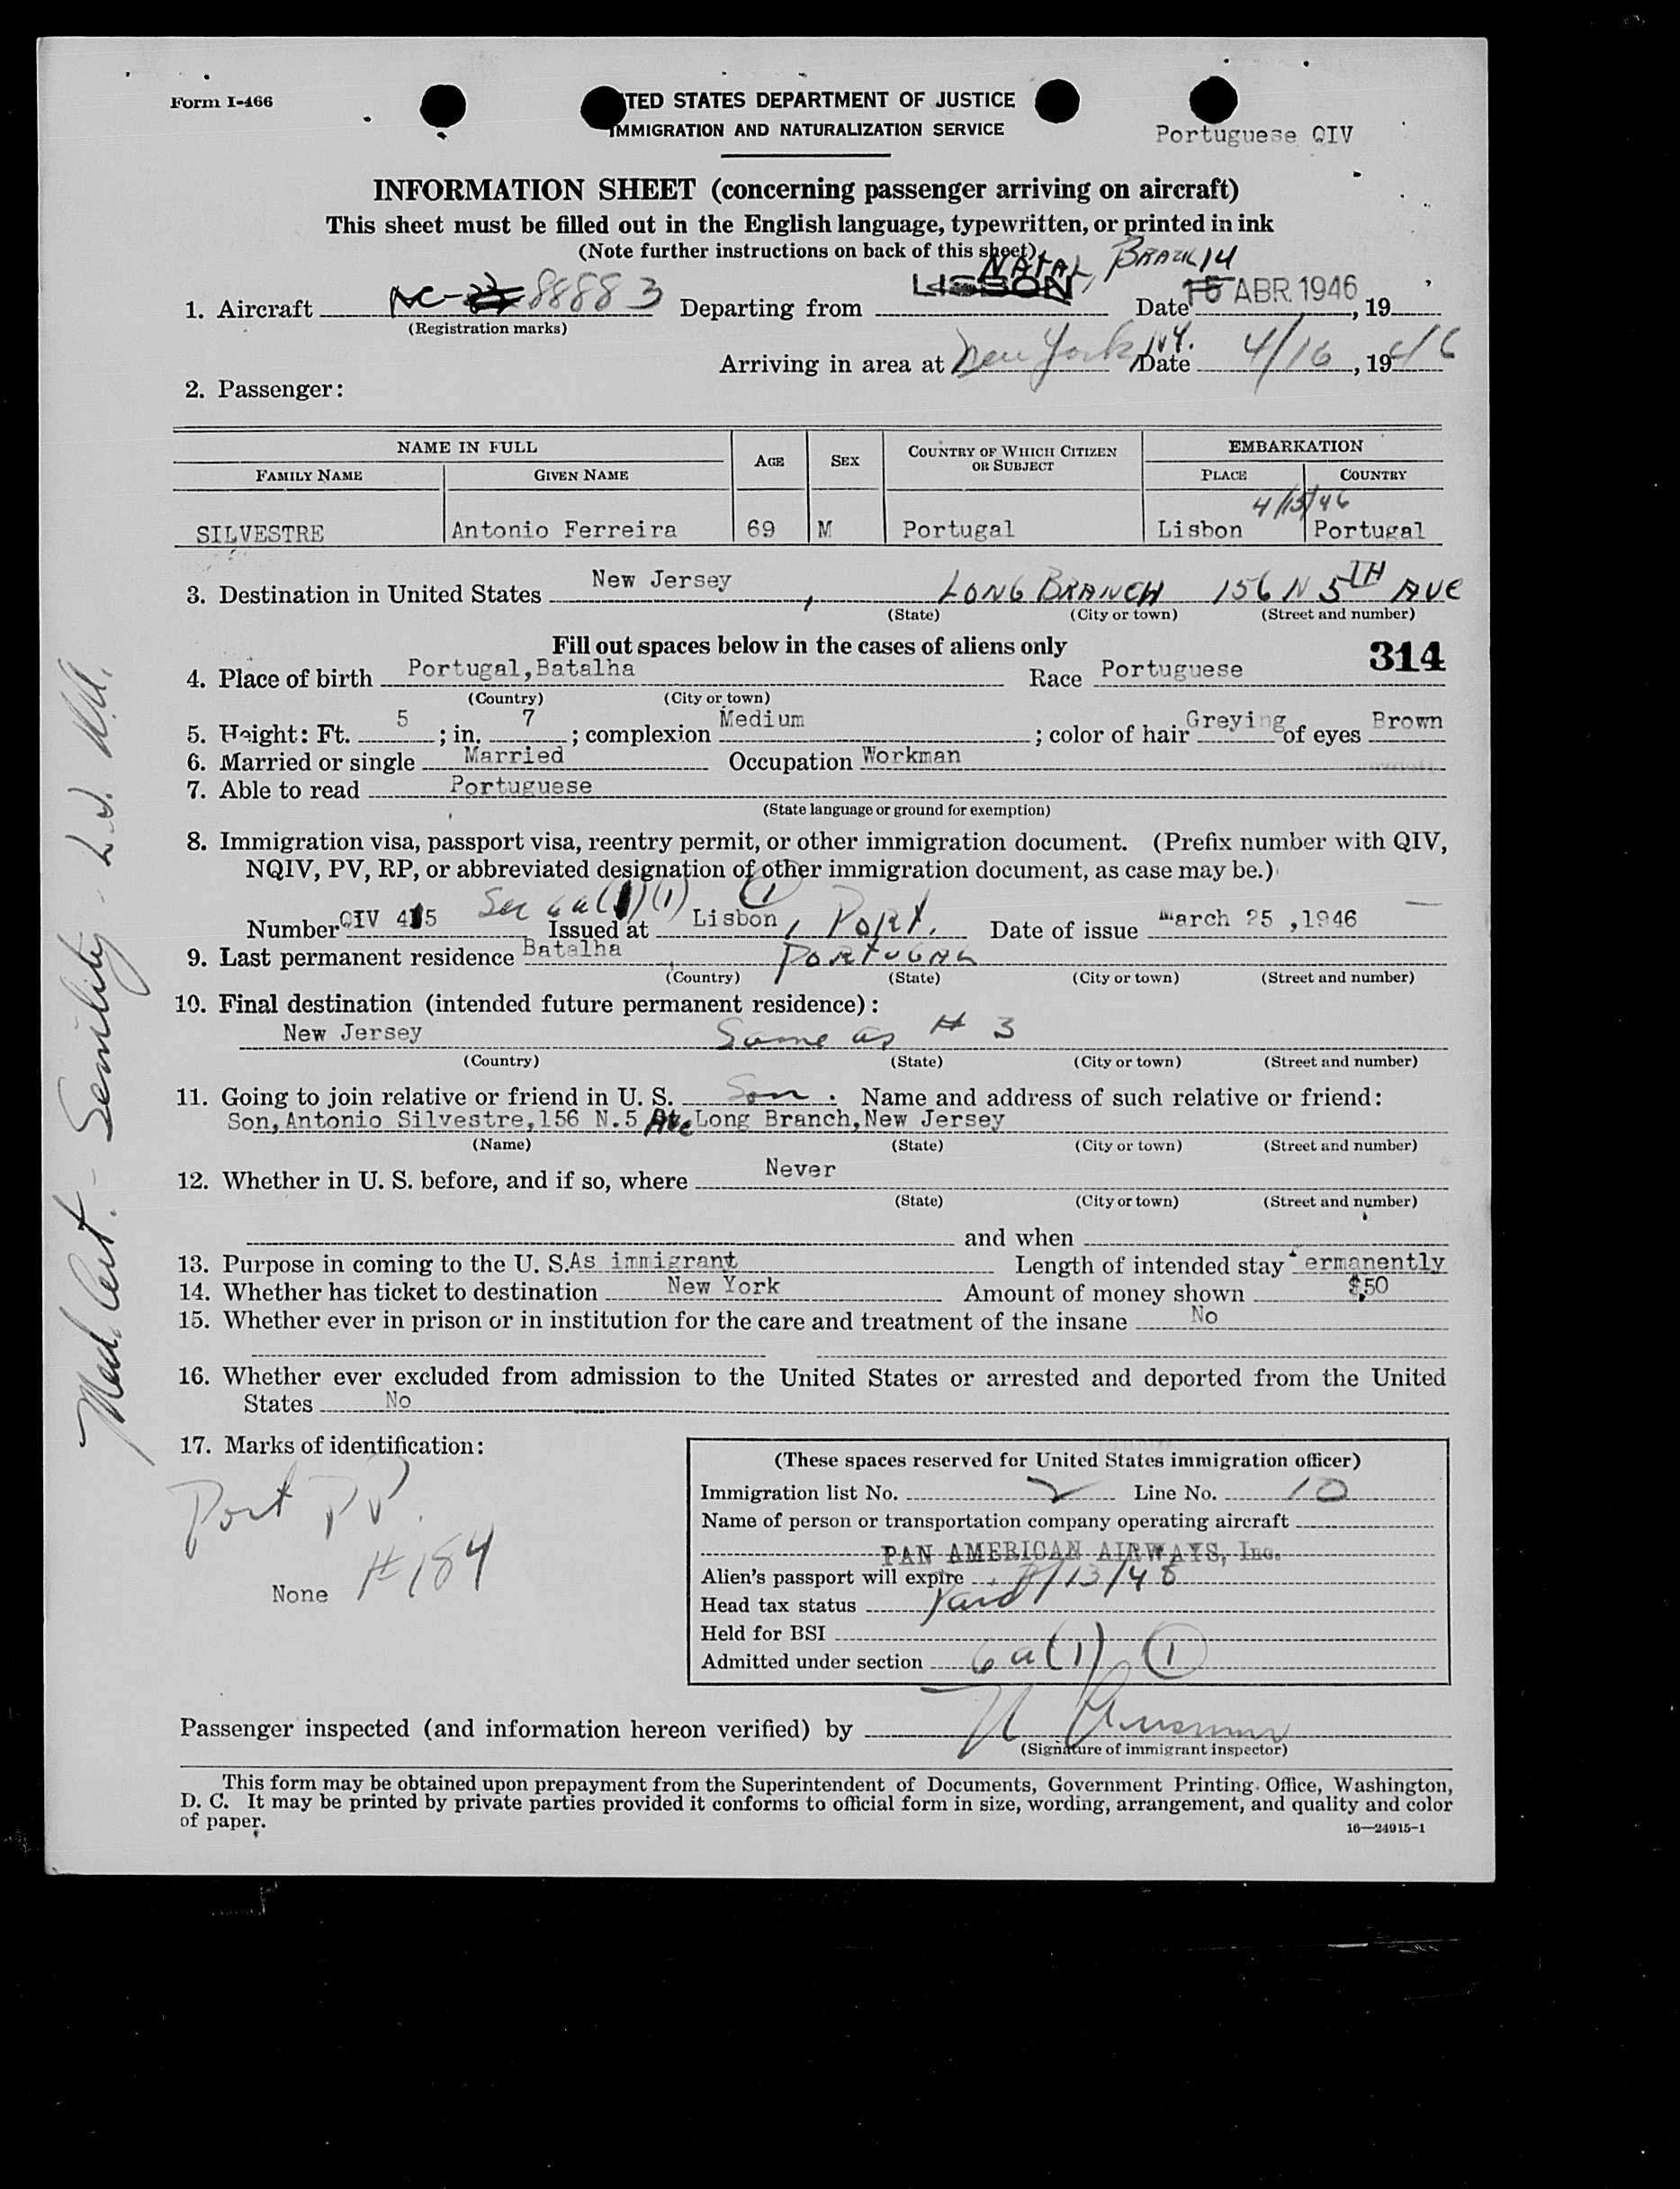 Form I-466
TED STATES DEPARTMENT OF JUSTICE
IMMIGRATION AND NATURALIZATION SERVICE
Portuguese QIV
INFORMATION SHEET (concerning passenger arriving on aircraft)
This sheet must be filled out in the English language, typewritten, or printed in ink
(Note further instructions on back of this sheet)
NATAL, BRAZIL 14
1. Aircraft NC-88883 Departing from LISBON Date 15 ABR. 1946, 19
(Registration marks)
Arriving in area at New York, N.Y. Date 4/16, 1946
2. Passenger:
NAME IN FULL AGE SEX COUNTRY OF WHICH CITIZEN OR SUBJECT EMBARKATION
FAMILY NAME GIVEN NAME PLACE COUNTRY
4/15/46
SILVESTRE Antonio Ferreira 69 M Portugal Lisbon Portugal
3. Destination in United States New Jersey, LONG BRANCH 156 N 5TH AVE
(State) (City or town) (Street and number)
Fill out spaces below in the cases of aliens only
314
4. Place of birth Portugal, Batalha Race Portuguese
(Country) (City or town)
5. Height: Ft. 5; in. 7; complexion Medium; color of hair Greying of eyes Brown
6. Married or single Married Occupation Workman
7. Able to read Portuguese
(State language or ground for exemption)
8. Immigration visa, passport visa, reentry permit, or other immigration document. (Prefix number with QIV,
NQIV, PV, RP, or abbreviated designation of other immigration document, as case may be.)
Sec 6a(1)(1) 1
Number QIV 415 Issued at Lisbon, PORT. Date of issue March 25, 1946
9. Last permanent residence Batalha, PORTUGAL
(Country) (State) (City or town) (Street and number)
10. Final destination (intended future permanent residence):
New Jersey Same as # 3
(Country) (State) (City or town) (Street and number)
11. Going to join relative or friend in U. S. Son. Name and address of such relative or friend:
Son, Antonio Silvestre, 156 N. 5 Ave Long Branch, New Jersey
(Name) (State) (City or town) (Street and number)
12. Whether in U. S. before, and if so, where Never
(State) (City or town) (Street and number)
and when
13. Purpose in coming to the U. S. As immigrant Length of intended stay Permanently
14. Whether has ticket to destination New York Amount of money shown $50
15. Whether ever in prison or in institution for the care and treatment of the insane No
16. Whether ever excluded from admission to the United States or arrested and deported from the United
States No
17. Marks of identification:
Port PP.
#184
None
(These spaces reserved for United States immigration officer)
Immigration list No. 2 Line No. 10
Name of person or transportation company operating aircraft
PAN AMERICAN AIRWAYS, Inc.
Alien's passport will expire /13/48
Head tax status Paid
Held for BSI
Admitted under section 6a(1) 1
Passenger inspected (and information hereon verified) by
(Signature of immigrant inspector)
This form may be obtained upon prepayment from the Superintendent of Documents, Government Printing Office, Washington,
D. C. It may be printed by private parties provided it conforms to official form in size, wording, arrangement, and quality and color
of paper.
16—24915-1
Med. Cert. - Senility -